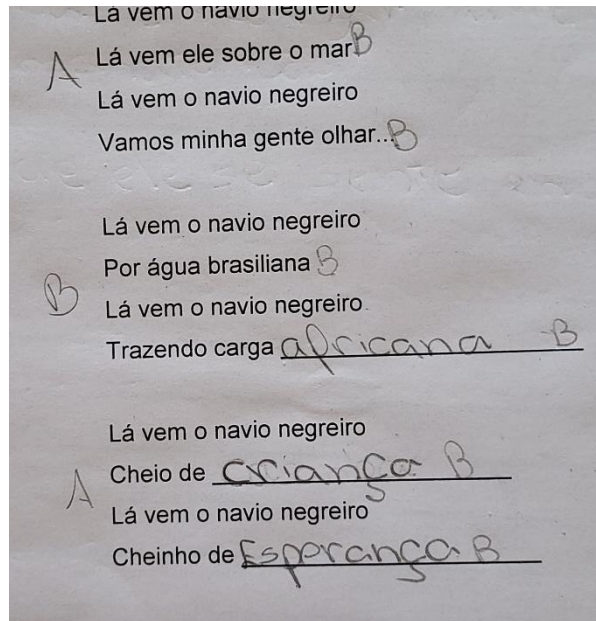 Lá vem o navio negreiro
A Lá vem ele sobre o mar B
Lá vem o navio negreiro
Vamos minha gente olhar... B
Lá vem o navio negreiro
Por água brasiliana B
B Lá vem o navio negreiro
Trazendo carga africana B
Lá vem o navio negreiro
A Cheio de criança B
Lá vem o navio negreiro
Cheinho de Esperança B